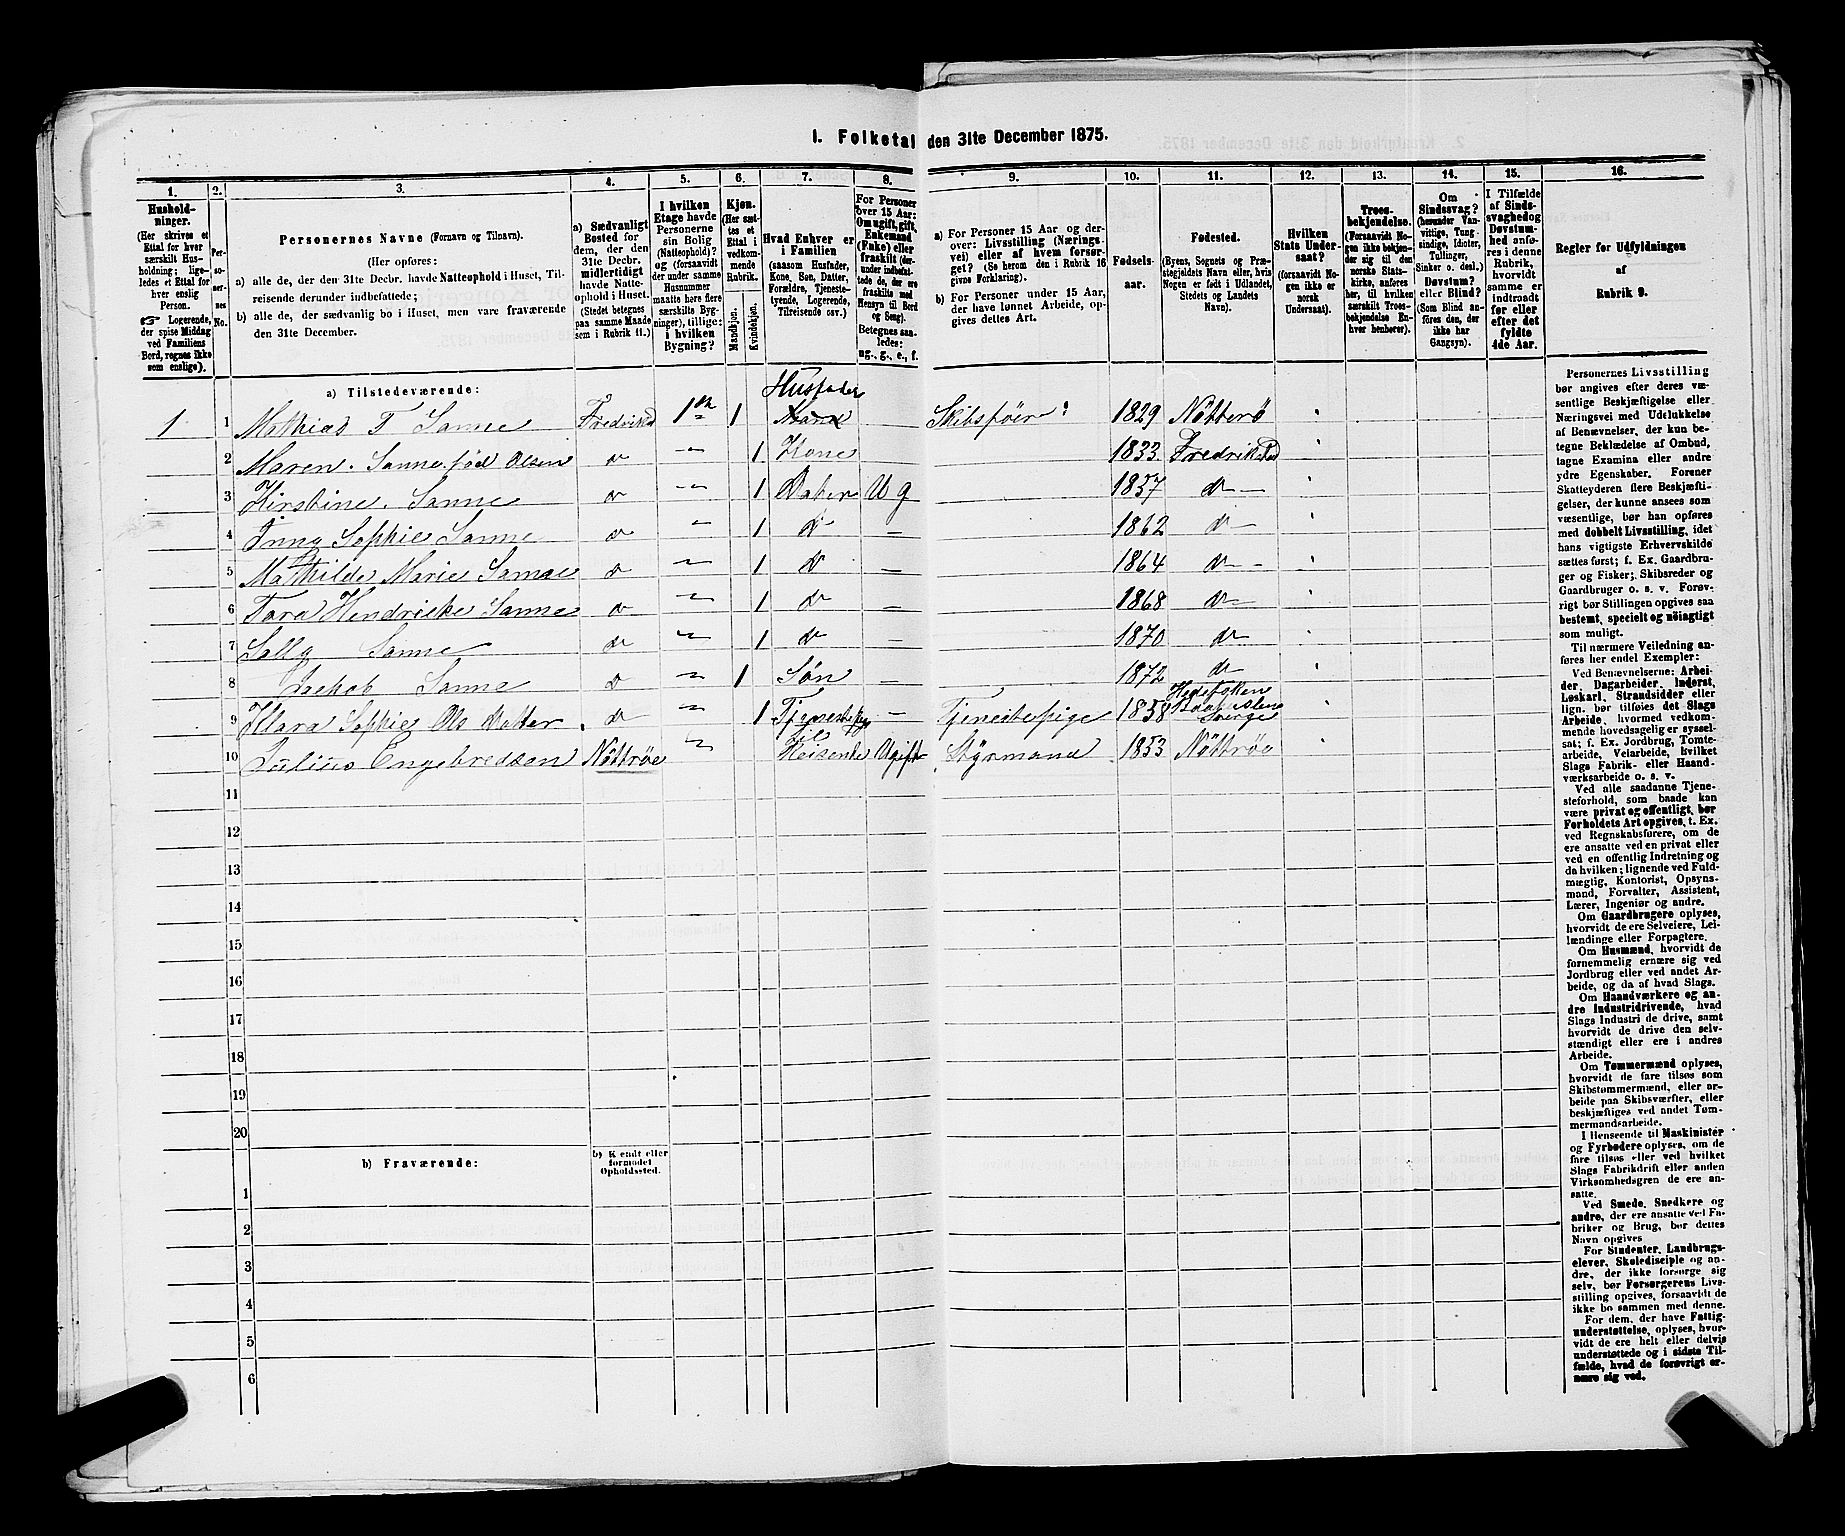 1. Folketal den 31te December 1875.
1. 2. 3. 4. 5. 6. 7. 8. 9. 10. 11. 12. 13. 14. 15. 16.
Hushold-
ninger.
(Her skrives et
Ettal for hver
særskilt Hus-
holdning; lige-
ledes et Ettal for
hver enslig
Person.
Logerende,
der spise Middag
ved Familiens
Bord, regnes ikke
som enslige).
Per-
so-
ner-
nes
No.
Personernes Navne (Fornavn og Tilnavn).
(Her opføres:
a) alle de, der den 31te Decbr. havde Natteophold i Huset, Til-
reisende derunder indbefattede;
b) alle de, der sædvanlig bo i Huset, men vare fraværende
den 31te December.
a) Sædvanligt
Bosted for
dem, der den
31te Decbr.
midlertidigt
havde Natte-
ophold i Huset.
(Stedet betegnes
paa samme Maade
som i Rubrik 11.)
I hvilken
Etage havde
Personerne
sin Bolig
(Natteophold)?
og (forsaavidt
der under samme
Husnummer
maatte høre flere
særskilts Byg-
ninger), tillige:
i hvilken
Bygning?
Kjøn.
(Her sæt-
tes et
Ettal i
vedkom-
mende
Rubrik.
Mandkjøn.
Kvindekjøn.
Hvad Enhver er
i Familien
(saasom Husfader,
Kone, Søn, Datter,
Forældre, Tjeneste-
tyende, Logerende,
Tilreisende osv.)
For Personer
over 15 Aar:
Om ugift, gift,
Enkemand
(Enke) eller
fraskilt (der-
under indbefat-
tede de, der ere
fraskilte med
Hensyn til Bord
og Seng).
Betegnes saa-
ledes:
ug., g., e., f.
a) For Personer 15 Aar og der-
over: Livsstilling (Nærings-
vei) eller af hvem forsør-
get? (Se herom den i Rubrik 16
givne Forklaring).
b) For Personer under 15 Aar,
der have lønnet Arbeide, op-
gives dettes Art.
Fødsels-
aar.
Fødested.
(Byens, Sognets og Præ-
stegjeldets Navn eller, hvis
Nogen er født i Udlandet,
Stedets og Landets
Navn).
Hvilken
Stats Under-
saat?
(forsaavidt No-
gen ikke er
norsk
Undersaat).
Troes-
bekjendelse.
(Forsaavidt No-
gen ikke bekjen-
der sig til den
norske Stats-
kirke, anføres
her, til hvilken
særskilt Troes-
bekjendelse En-
hver henhører).
Om
Sindssvag?
(herunder Van-
vittige, Tung-
sindige, Idioter,
Tullinger,
Sinker o. desl.)
Døvstum?
eller Blind?
(Som Blind an-
føres den, der
ikke har
Gangsyn).
I Tilfælde
af Sinds-
svaghed og
Døvstum-
hed anfø-
res i denne
Rubrik,
hvorvidt
samme er
indtraadt
før eller
efter det
fyldte
4de Aar.
Regler for Udfyldningen
af
Rubrik 9.
a) Tilstedeværende:
Husfader
1 1 Mathias T Sanne Fredrikst 1 1 Skibsfører 1829 Nötterö
2 Maren Sanne föd Olsen do 1 Kone 1833 Fredrikstad
3 Kirstine Sanne do 1 Datter Ug 1857 do
4 Sophie Sanne do 1 do 1862 do
5 Mathilde Marie Sanne do 1 do 1864 do
6 Hendricke Sanne do 1 do 1868 do
7 Sally Sanne do 1 do 1870 do
8 Jackob Sanne do 1 Søn 1872 do
9 Klara Sophie Ols Datter do 1 Tjenestepige 1858 Sverge
til
10 Julius Engebredsen Nöttröe Reisende Ugift Styrmand 1853 Nöttröe
11
12
13
14
15
16
17
18
19
20
b) Fraværende:
b) Kjendt eller
formodet
Opholdssted.
1
2
3
4
5
6
Personernes Livsstilling
bør angives efter deres væ-
sentlige Beskjæftigelse eller
Næringsvei med Udelukkelse
af Benævnelser, der kun be-
tegne Beklædelse af Ombud,
tagne Examina eller andre
ydre Egenskaber. Forener
Skatteyderen flere Beskjæfti-
gelser, der kunne ansees som
væsentlige, bør han opføres
med dobbelt Livsstilling, idet
hans vigtigste Erhvervskilde
sættes først; f. Ex. Gaardbru-
ger og Fisker; Skibsreder og
Gaardbruger o. s. v. Forøv-
rigt bør Stillingen opgives saa
bestemt, specielt og nöiagtigt
som muligt.
Til nærmere Veiledning an-
føres her endel Exempler:
Ved Benævnelserne: Arbei-
der, Dagarbeider, Inderst,
Løskarl, Strandsidder eller
lign. bør tilføies det Slags
Arbeide, hvormed vedkom-
mende hovedsagelig er syssel-
sat; f. Ex. Jordbrug, Tomte-
arbeide, Veiarbeide, hvilket
Slags Fabrik- eller Haand-
værksarbeide o. s. v.
Ved alle saadanne Tjene-
steforhold, som baade kan
være privat og offentligt, bør
Forholdets Art opgives, t. Ex.
ved Regnskabsførere, om de
ere ansatte ved en privat eller
ved en offentlig Indretning og
da hvilken; lignende ved Fuld-
mægtig, Kontorist, Opsyns-
mand, Forvalter, Assistent,
Lærer, Ingeniør og andre.
Om Gaardbrugere oplyses,
hvorvidt de ere Selveiere, Lei-
lændinge eller Forpagtere.
Om Husmænd, hvorvidt de
fornemmelig ernære sig ved
Jordbrug eller ved andet Ar-
beide, og da af hvad Slags.
Om Haandværkere og an-
dre Industridrivende, hvad
Slags Industri de drive, samt
hvorvidt de drive den selv-
stændigt eller ere i andres
Arbeide.
Om Tømmermænd oplyses,
hvorvidt de fare tilsøs som
Skibstømmermænd, eller ar-
beide paa Skibsværfter, eller
beskjæftiges ved andet Tøm-
mermandsarbeide.
I Henseende til Maskinister
og Fyrbødere oplyses, om de
fare tilsøs eller ved hvilket
Slags Fabrikdrift eller anden
Virksomhedsgren de ere an-
satte.
Ved Smede, Snedkere og
andre, der ere ansatte ved Fa-
briker og Brug, bør dettes
Navn opgives
For Studenter, Landbrugs-
elever, Skoledisciple og an-
dre, der ikke forsørge sig
selv, bør Forsørgerens Livs-
stilling opgives, forsaavidt de
ikke bo sammen med denne.
For dem, der have Fattig-
understøttelse, oplyses, hvor-
vidt de ere helt eller delvis
understøttede og i sidste Til-
fælde, hvad de forøvrigt er-
nære sig ved.